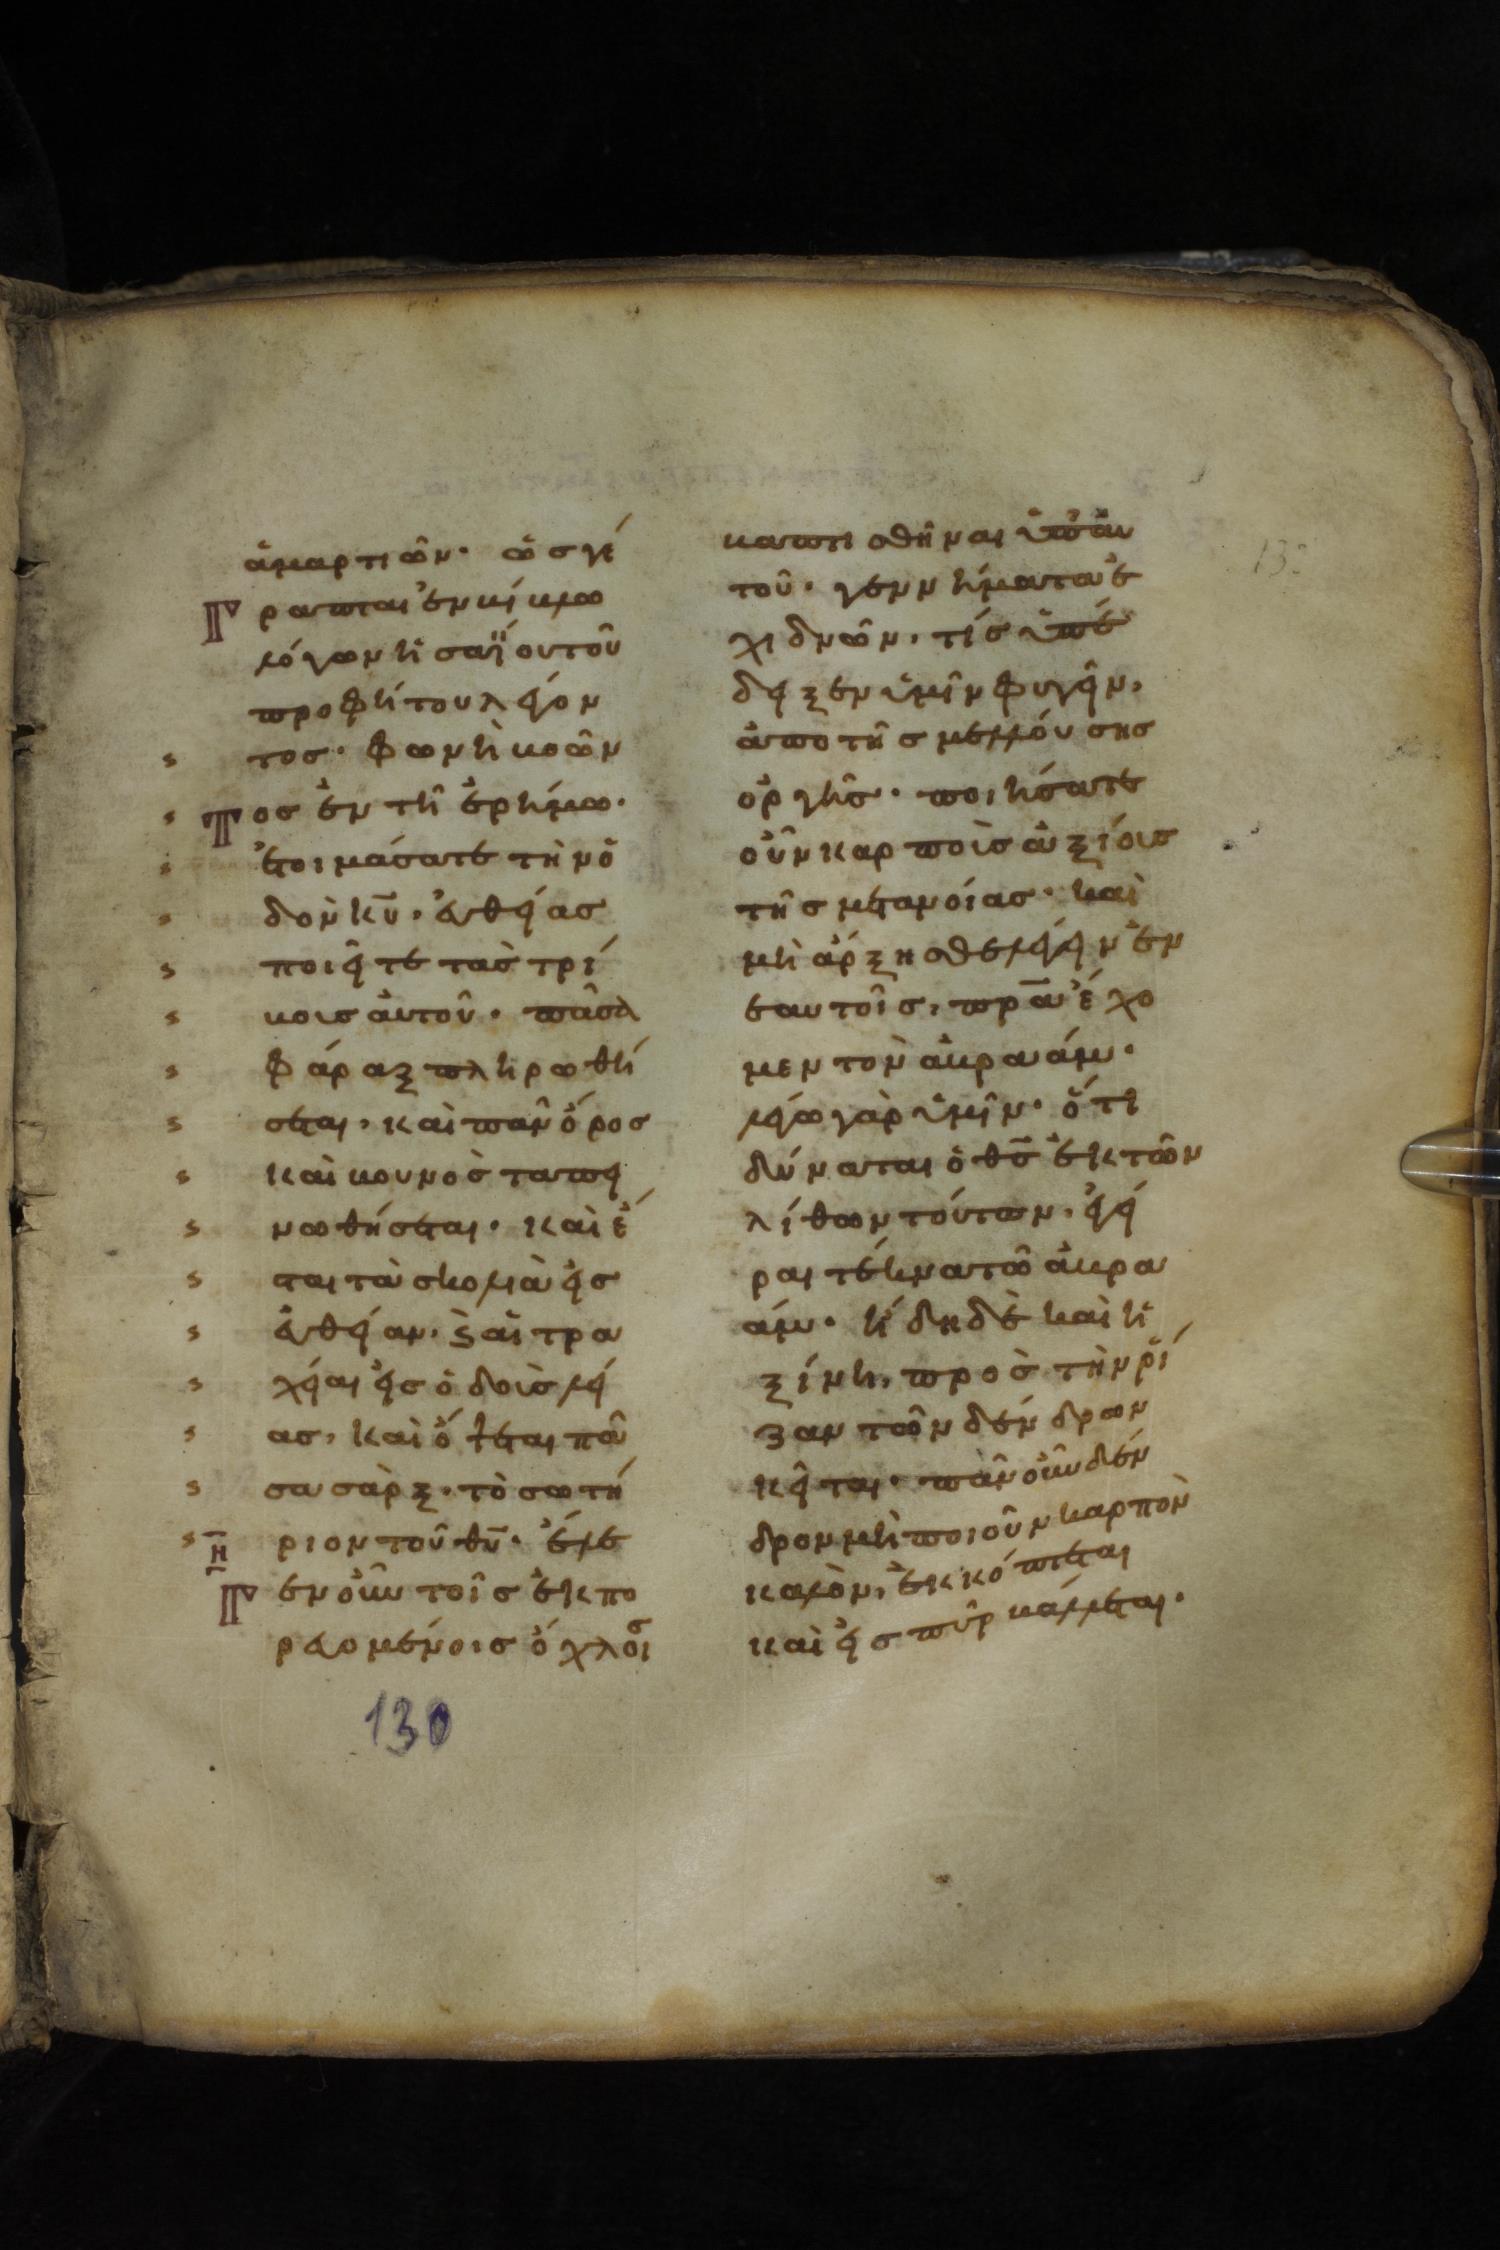 ἁμαρτιῶν· ὡσ γέ
γραπται ἐν βίβλω
λόγων ἡσαΐου τοῦ
προφήτου λέγον
τοσ· φωνὴ βοῶν
τοσ ἐν τῆ ἐρήμω·
ἑτοιμάσατε τὴν ὁ
δὸν κ̅υ̅· εὐθείασ
ποιεῖτε τὰσ τρί
βουσ αὐτοῦ· πᾶσα
φάραξ πληρωθή
σεται, καὶ πᾶν ὄροσ
καὶ βουνὸσ ταπει
νωθήσεται· καὶ ἔ
σται τὰ σκολιὰ εἰσ
εὐθείαν, ϗ αἱ τρα
χείαι εἰσ ὁδοὺσ λεί
ασ, καὶ ὄψεται πᾶ
σα σὰρξ, τὸ σωτή
ριον τοῦ θ̅υ̅· ἔλε
η̅
γεν οὖν τοῖσ ἐκπο
ρευομένοισ ὄχλοισ
βαπτισθῆναι ὑπ' αὐ
τοῦ· γεννήματα ἐ
χιδνῶν, τίσ ὑπέ
δειξεν ὑμῖν φυγεῖν,
ἀπὸ τῆσ μελλούσησ
ὀργῆσ· ποιήσατε
οὖν καρποὺσ ἀξίουσ
τῆσ μετανοίασ· καὶ
μὴ ἄρξησθε λέγειν ἐν
ἑαυτοῖσ, π̅ρ̅α̅ ἔχο
μεν τὸν ἀβραάμ·
λέγω γὰρ ὑμῖν· ὅτι
δύναται ὁ θ̅σ̅ ἐκ τῶν
λίθων τούτων, ἐγεῖ
ραι τέκνα τῶ ἀβρα
άμ· ἤδη δὲ καὶ ἡ
ξίνη, πρὸσ τὴν ῥί
ζαν τῶν δένδρων
κεῖται· πᾶν οὖν δέν
δρον μὴ ποιοῦν καρπὸν
καλὸν, ἐκκόπτεται
καὶ εἰσ πῦρ βάλλεται·
130